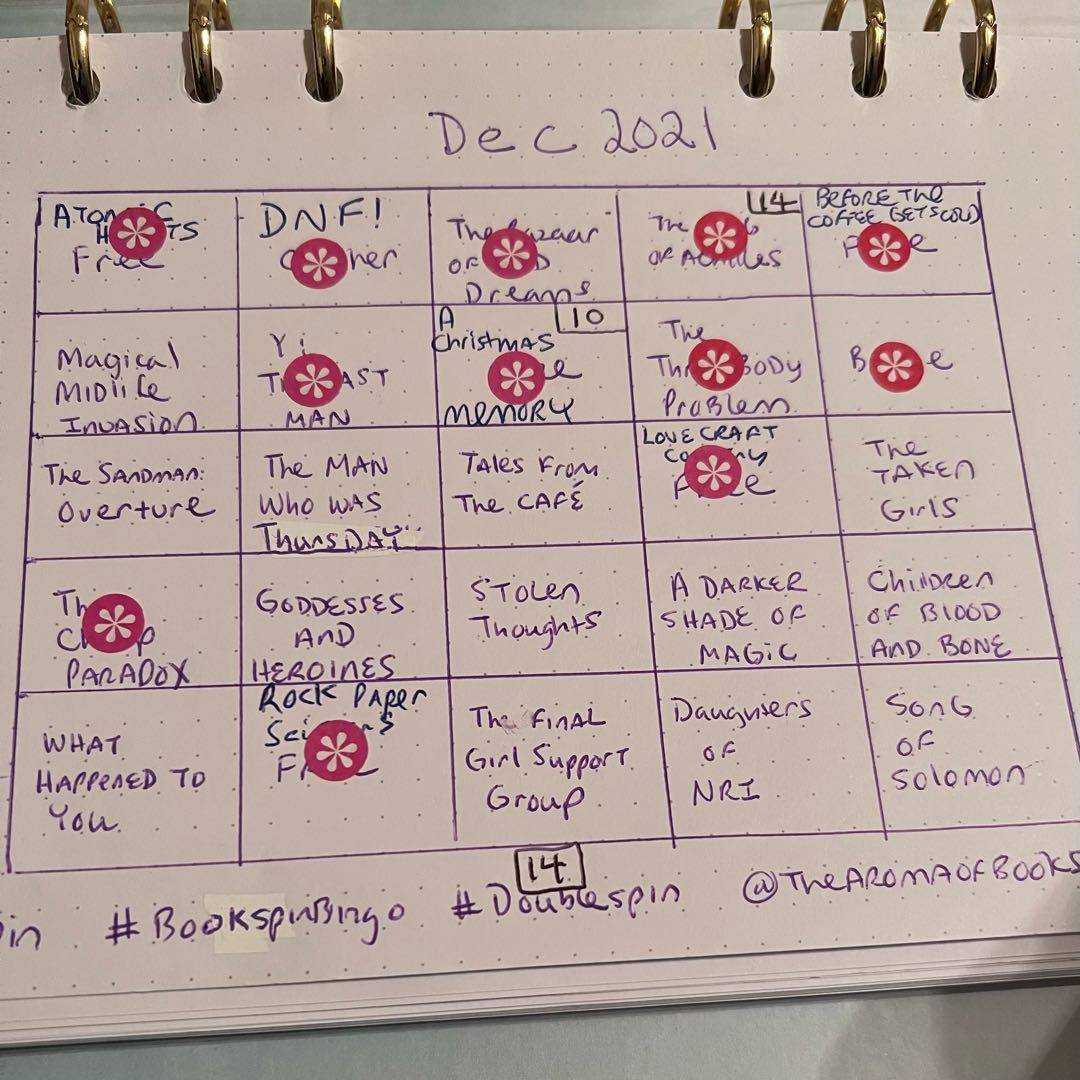 Dec 2021
ATOMIC
HABITS
Free
DNF!
The Bazaar
OF BAD
Dreams
14
The
OF ACHILLES
BEFORE THE
COFFEE GETS COLD
Free
Magical
MIDlife
Invasion
THE LAST
MAN
10
A
Christmas
MEMORY
The
Three BODY
Problem
LOVECRAFT
Country
Free
The SANDMAN:
Overture
The MAN
Who WAS
ThursDAY
TALES From
The CAFÉ
The
TAKEN
GIRLS
PARADOX
GODDESSES
AND
HEROINES
STOLEN
Thoughts
A DARKER
SHADE OF
MAGIC
Children
OF BLOOD
AND BONE
WHAT
HAPPENED TO
You
Rock PAPER
Scissors
Free
The FINAL
Girl Support
Group
Daughters
OF
NRI
SONG
OF
Solomon
14
#BookspinBingo #Doublespin @THEAROMAOFBOOKS